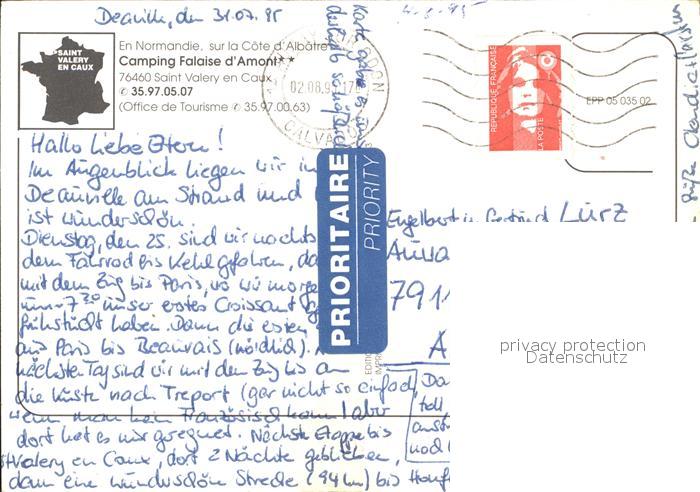 Deauville, den 31.07.95
4.8.95
SAINT
VALERY
EN CAUX
En Normandie, sur la Côte d'Albâtre
Camping Falaise d'Amont**
76460 Saint Valery en Caux
✆ 35.97.05.07
(Office de Tourisme ✆ 35.97.00.63)
02.08.95
CALVADOS
REPUBLIQUE FRANÇAISE
LA POSTE
EPP 05 035 02
PRIORITAIRE
PRIORITY
Hallo liebe Eltern!
Im Augenblick liegen wir in
Deauville am Strand und
ist wunderschön.
Dienstag, den 25. sind wir nachts
dem Fahrrad bis Kehl gefahren, da
mit dem Zug bis Paris, wo wir
7 30 unser erstes Croissant
gefrühstückt haben. Dann die ersten
aus Paris bis Beauvais (nördlich).
nächsten Tag sind wir mit dem Zug bis an
die Küste nach Treport (gar nicht so einfach,
wenn man kein Französisch kann) aber
dort hat es nur geregnet. Nächste Etappe bis
St Valery en Caux, dort 2 Nächte geblieben,
dann eine wunderschöne Strecke (94 km) bis Honf
Lürz
791
EDITION
privacy protection
Datenschutz